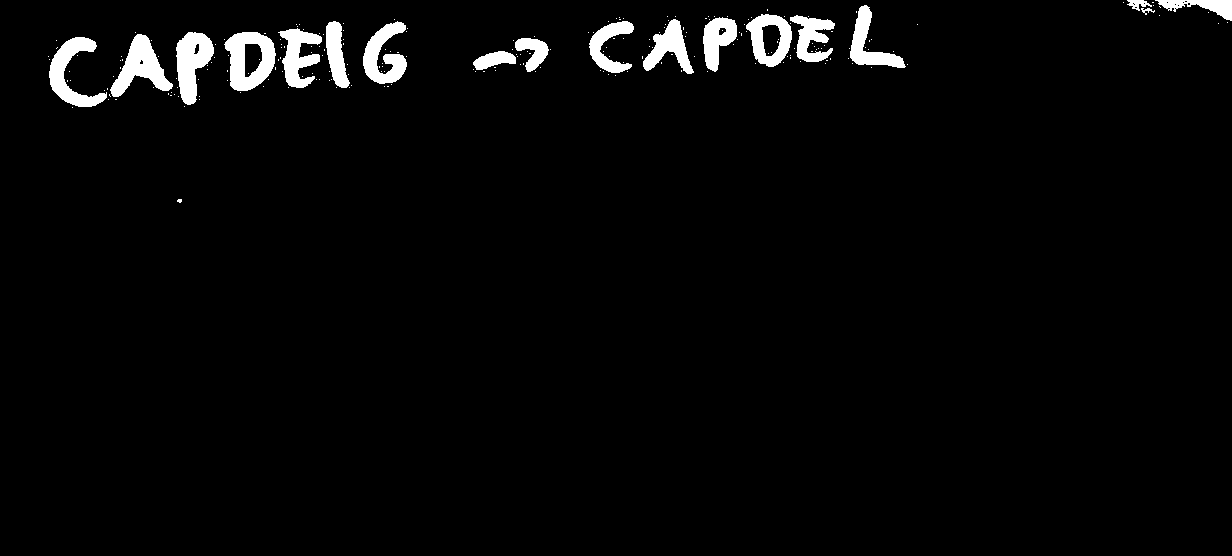 CAPDEIG -> CAPDEL